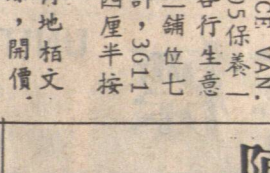 CE VAN.
05保養一
行生意
一舖位七
計，3611
四厘半按
地柏文
，開價